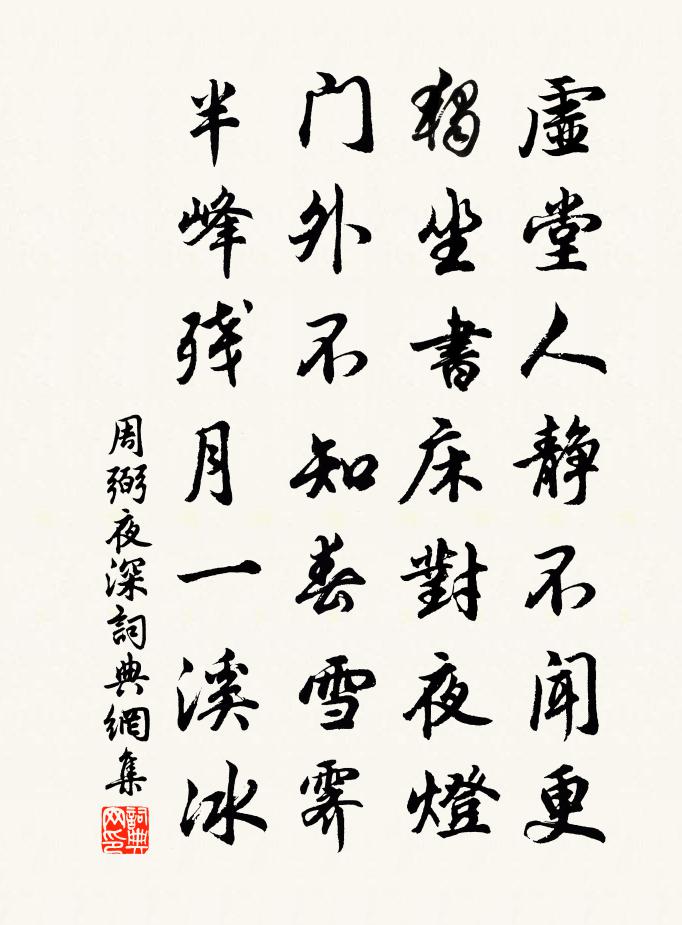 虛堂人静不聞更
獨坐書床對夜燈
门外不知春雪霽
半峰残月一溪冰
周弼夜深詞典網集
詞典网印